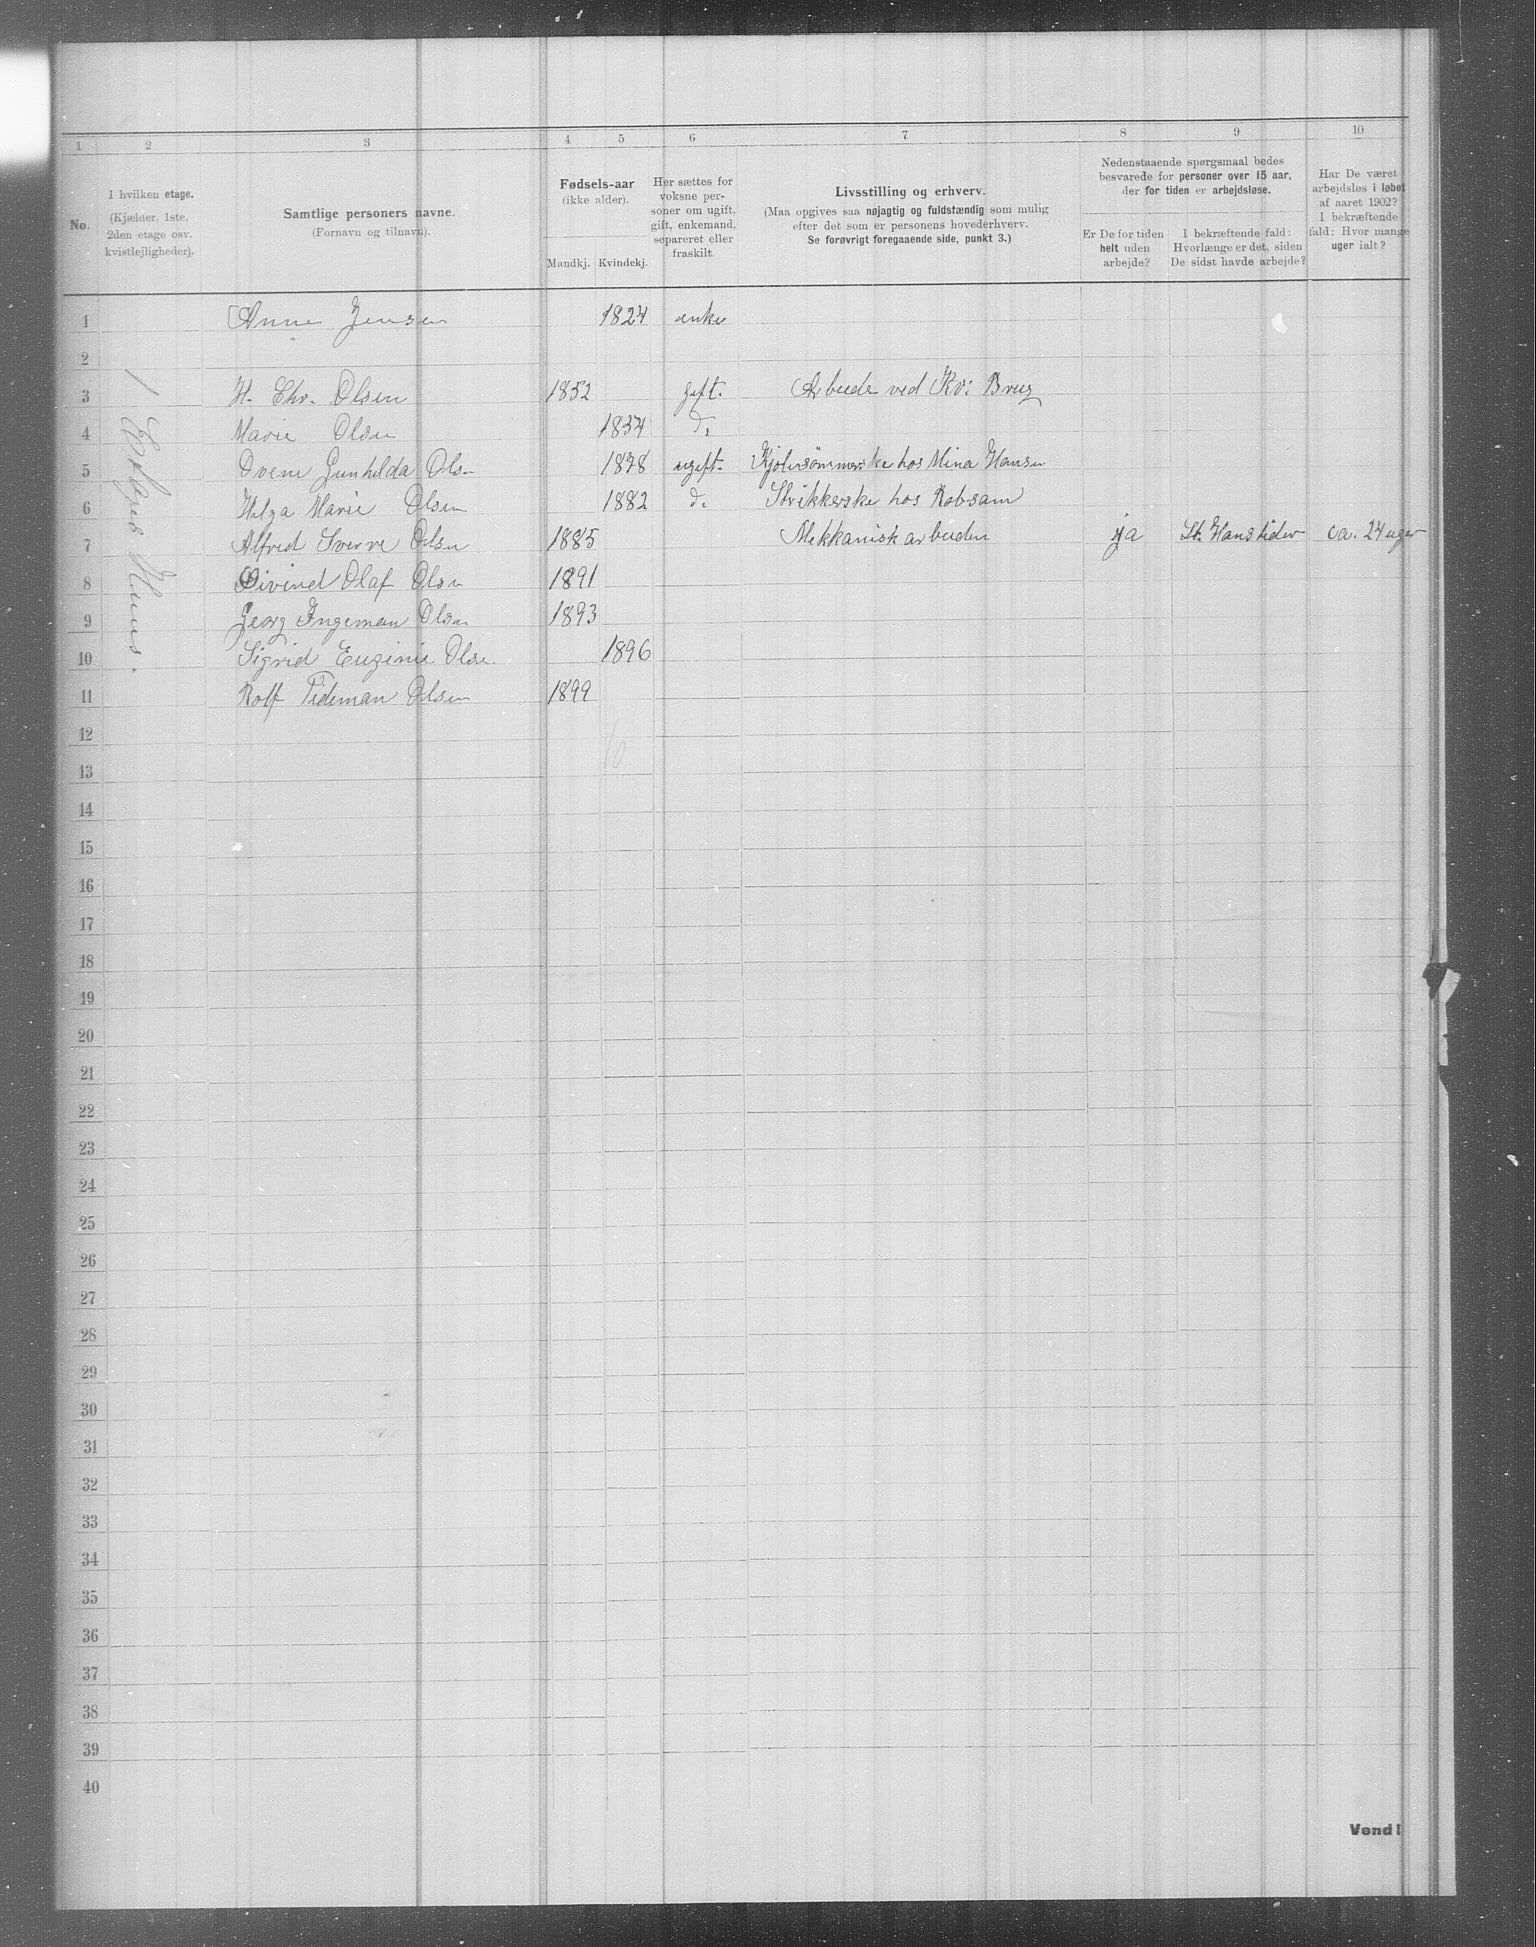 1 2 3 4 5 6 7 8 9 10
No.
I hvilken etage.
(Kjælder, 1ste.
2den etage osv.
kvistlejligheder).
Samtlige personers navne.
(Fornavn og tilnavn).
Fødsels-aar
(ikke alder).
Mandkj. Kvindekj.
Her sættes for
voksne per-
soner om ugift,
gift, enkemand,
separeret eller
fraskilt.
Livsstilling og erhverv.
(Maa opgives saa nøjagtig og fuldstændig som mulig
efter det som er personens hovederhverv.
Se forøvrigt foregaaende side, punkt 3.)
Nedenstaaende spørgsmaal bedes
besvarede for personer over 15 aar,
der for tiden er arbejdsløse.
Er De for tiden
helt uden
arbejde?
I bekræftende fald:
Hvorlænge er det, siden
De sidst havde arbejde?
Har De været
arbejdsløs i løbet
af aaret 1902?
I bekræftende
fald: Hvor mange
uger ialt?
1 Etages Huus.
1 Anne Jensen 1824 enke
2
3 H. Chr. Olsen 1852 gift. Arbeide ved Kv: Brug
4 Marie Olsen 1854 do
5 Gunhilda Olsen 1878 ugift. Kjolesömmerske hos Mina Hansen
6 Helga Marie Olsen 1882 do Strikkerske hos Robsam
7 Alfred Sverre Olsen 1885 Mekkanisk arbeider ja St. Hanstider ca. 24 uger
8 Øivind Olaf Olsen 1891
9 Georg Ingeman Olsen 1893
10 Sigrid Euginie Olsen 1896
11 Rolf Tideman Olsen 1899
12
13
14
15
16
17
18
19
20
21
22
23
24
25
26
27
28
29
30
31
32
33
34
35
36
37
38
39
40
10
Vend!